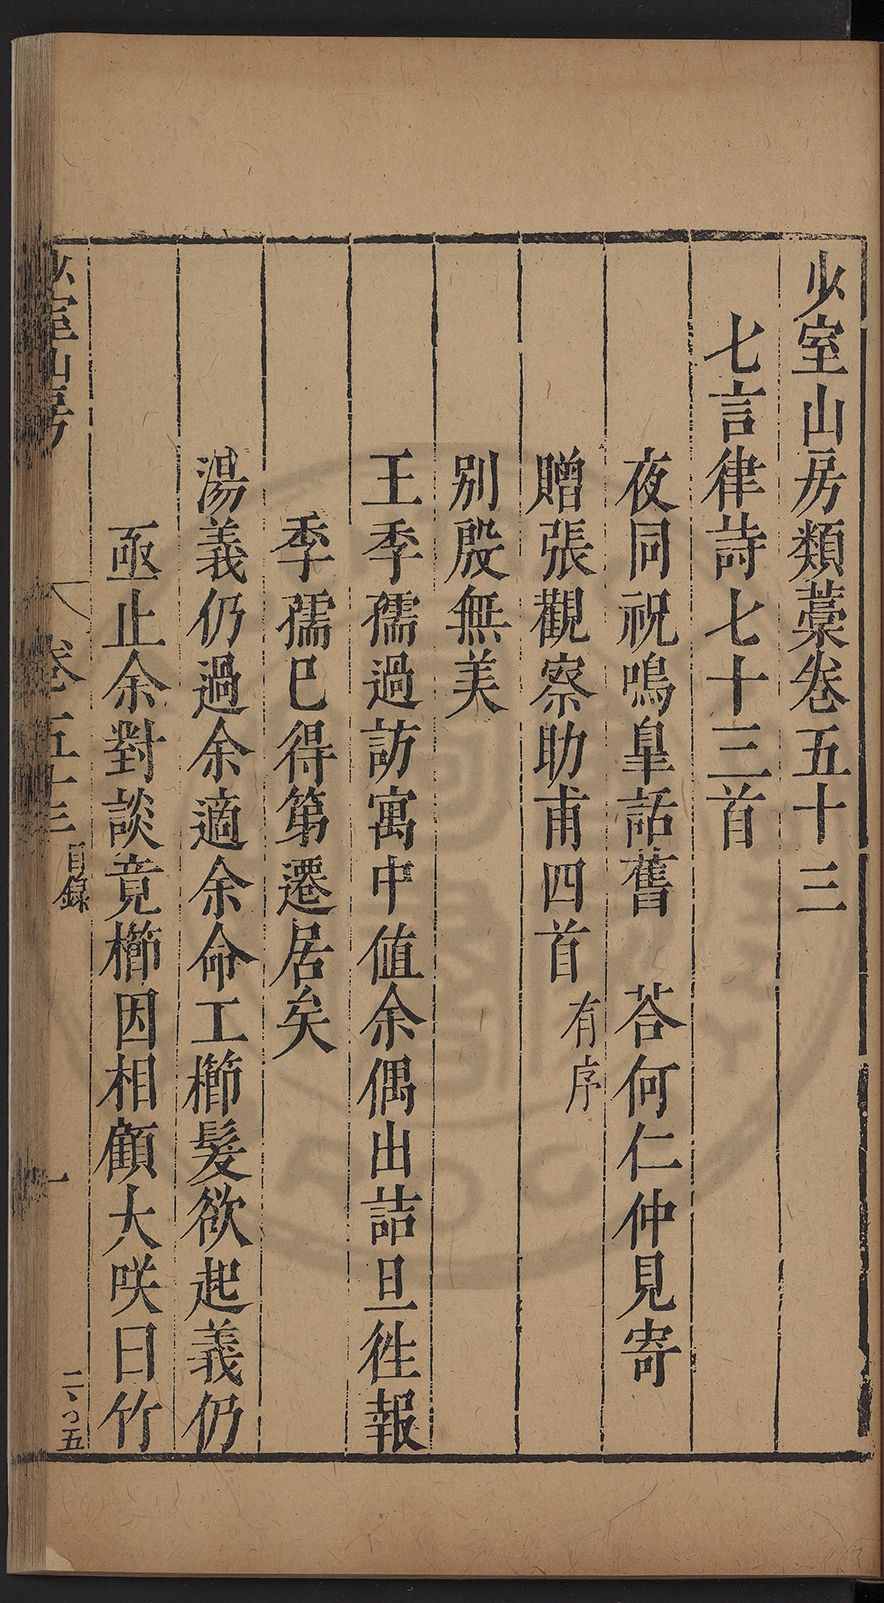 少室山房類藁卷五十三
七言律詩七十三首
夜同祝鳴皐話舊　荅何仁仲見寄
贈張觀察助甫四首有序
別殷無美
王季孺過訪寓中值余偶出詰旦徃報
季孺已得第遷居矣
湯義仍過余適余命工櫛髮欲起義仍
亟止余對談竟櫛因相顧大咲曰竹
少室山房
卷五十三
目錄
一
二、五